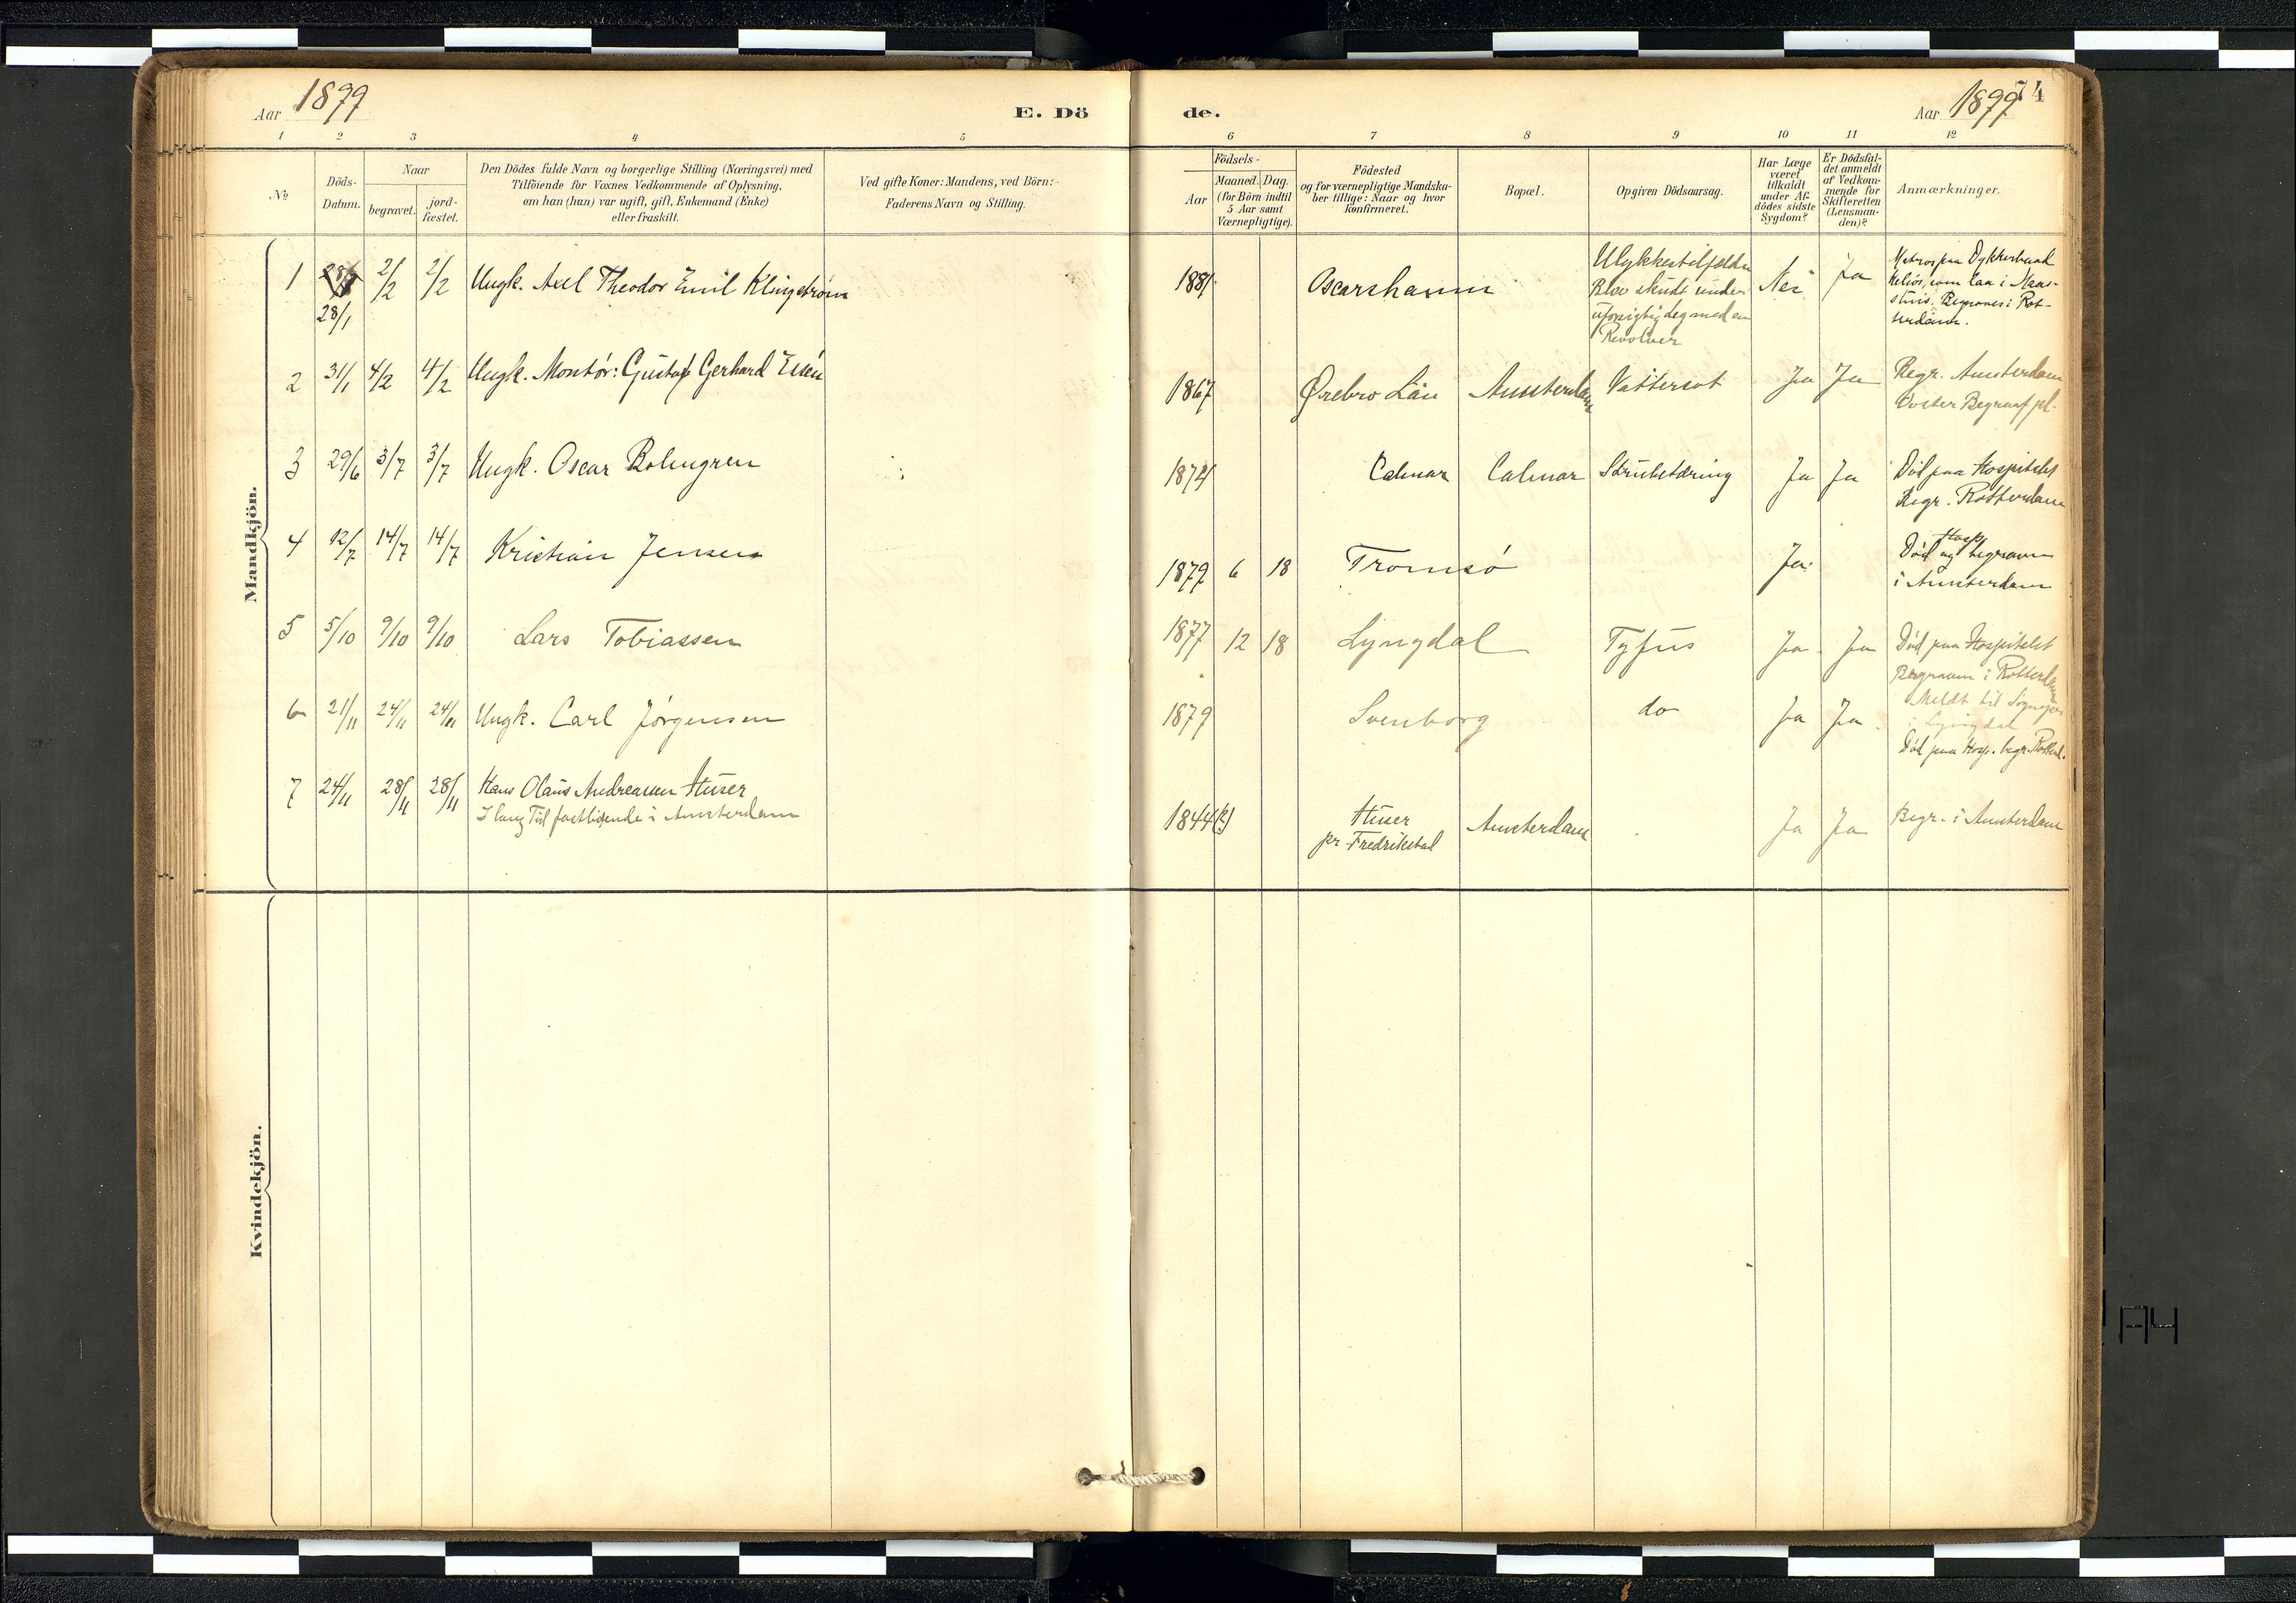 Aar 1899
E. Dö
de.
Aar 1899
74
1 2 3 4 5 6 7 8 9 10 11 12
No
Döds-Datum.
Naar
begravet.
jord-fæstet.
Den Dödes fulde Navn og borgerlige Stilling (Næringsvei) med
Tilföiende for Voxnes Vedkommende af Oplysning,
om han (hun) var ugift, gift, Enkemand (Enke)
eller fraskilt.
Ved gifte Koner: Mandens, ved Börn:
Faderens Navn og Stilling.
Födsels-
Aar
Maaned. Dag.
(for Börn indtil
5 Aar samt
Værnepligtige).
Födested
og for værnepligtige Mandska-
ber tillige: Naar og hvor
konfirmeret.
Bopæl.
Opgiven Dödsaarsag.
Har Læge
været
tilkaldt
under Af-
dödes sidste
Sygdom?
Er Dödsfal-
det anmeldt
af Vedkom-
mende for
Skifteretten
(Lensman-
den)?
Anmærkninger.
Mandkjön.
1 28/1 2/2 2/2 Ungk. Axel Theodor Emil Klingström 1881 Oscarshamn
Ulykkestilfælde
Blev skudt under
uforsigtig deg med en
Revolver
Nei Ja
Matros paa Dykkerbaad
Helios, som laa i Maas-
sluis. Begraves i Rot-
terdam.
2 31/1 4/2 4/2 Ungk. Montör: Gustaf Gerhard Eisén 1867 Ørebro Län Amsterdam Vattersot Ja Ja
Begr. Amsterdam
Ooster Begraafpl.
3 29/6 3/7 3/7 Ungk. Oscar Bolmgren 1874 Calmar Calmar Strubetæring Ja Ja
Död paa Hospitalet
Begr. Rotterdam
4 12/7 14/7 14/7 Kristian Jensen 1879 6 18 Tromsö Ja
Hosp
Död og begraven
i Amsterdam
5 5/10 9/10 9/10 Lars Tobiassen 1877 12 18 Lyngdal Tyfus Ja Ja
Död paa Hospitalet
Begraven i Rotterdam
Meldt til Sognepr
i Lyngdal
6 21/11 24/11 24/11 Ungk. Carl Jörgensen 1879 Svenborg do Ja Ja
Död paa Hosp. begr. Rotterd.
7 24/11 28/11 28/11 Hans Olaus Andreassen Huser
I lang Tid fastliggende i Amsterdam
1844(?) Huser
pr Fredrikstad
Amsterdam Ja Ja Begr. i Amsterdam
Kvindekjön.
A4